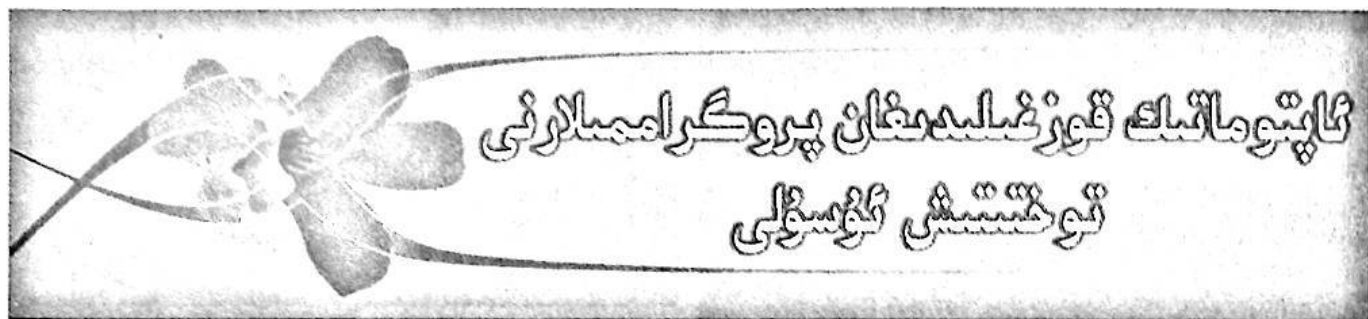 ئاپتوماتىك قوزغىلىدىغان پروگراممىلارنى
توختىتىش ئۇسۇلى